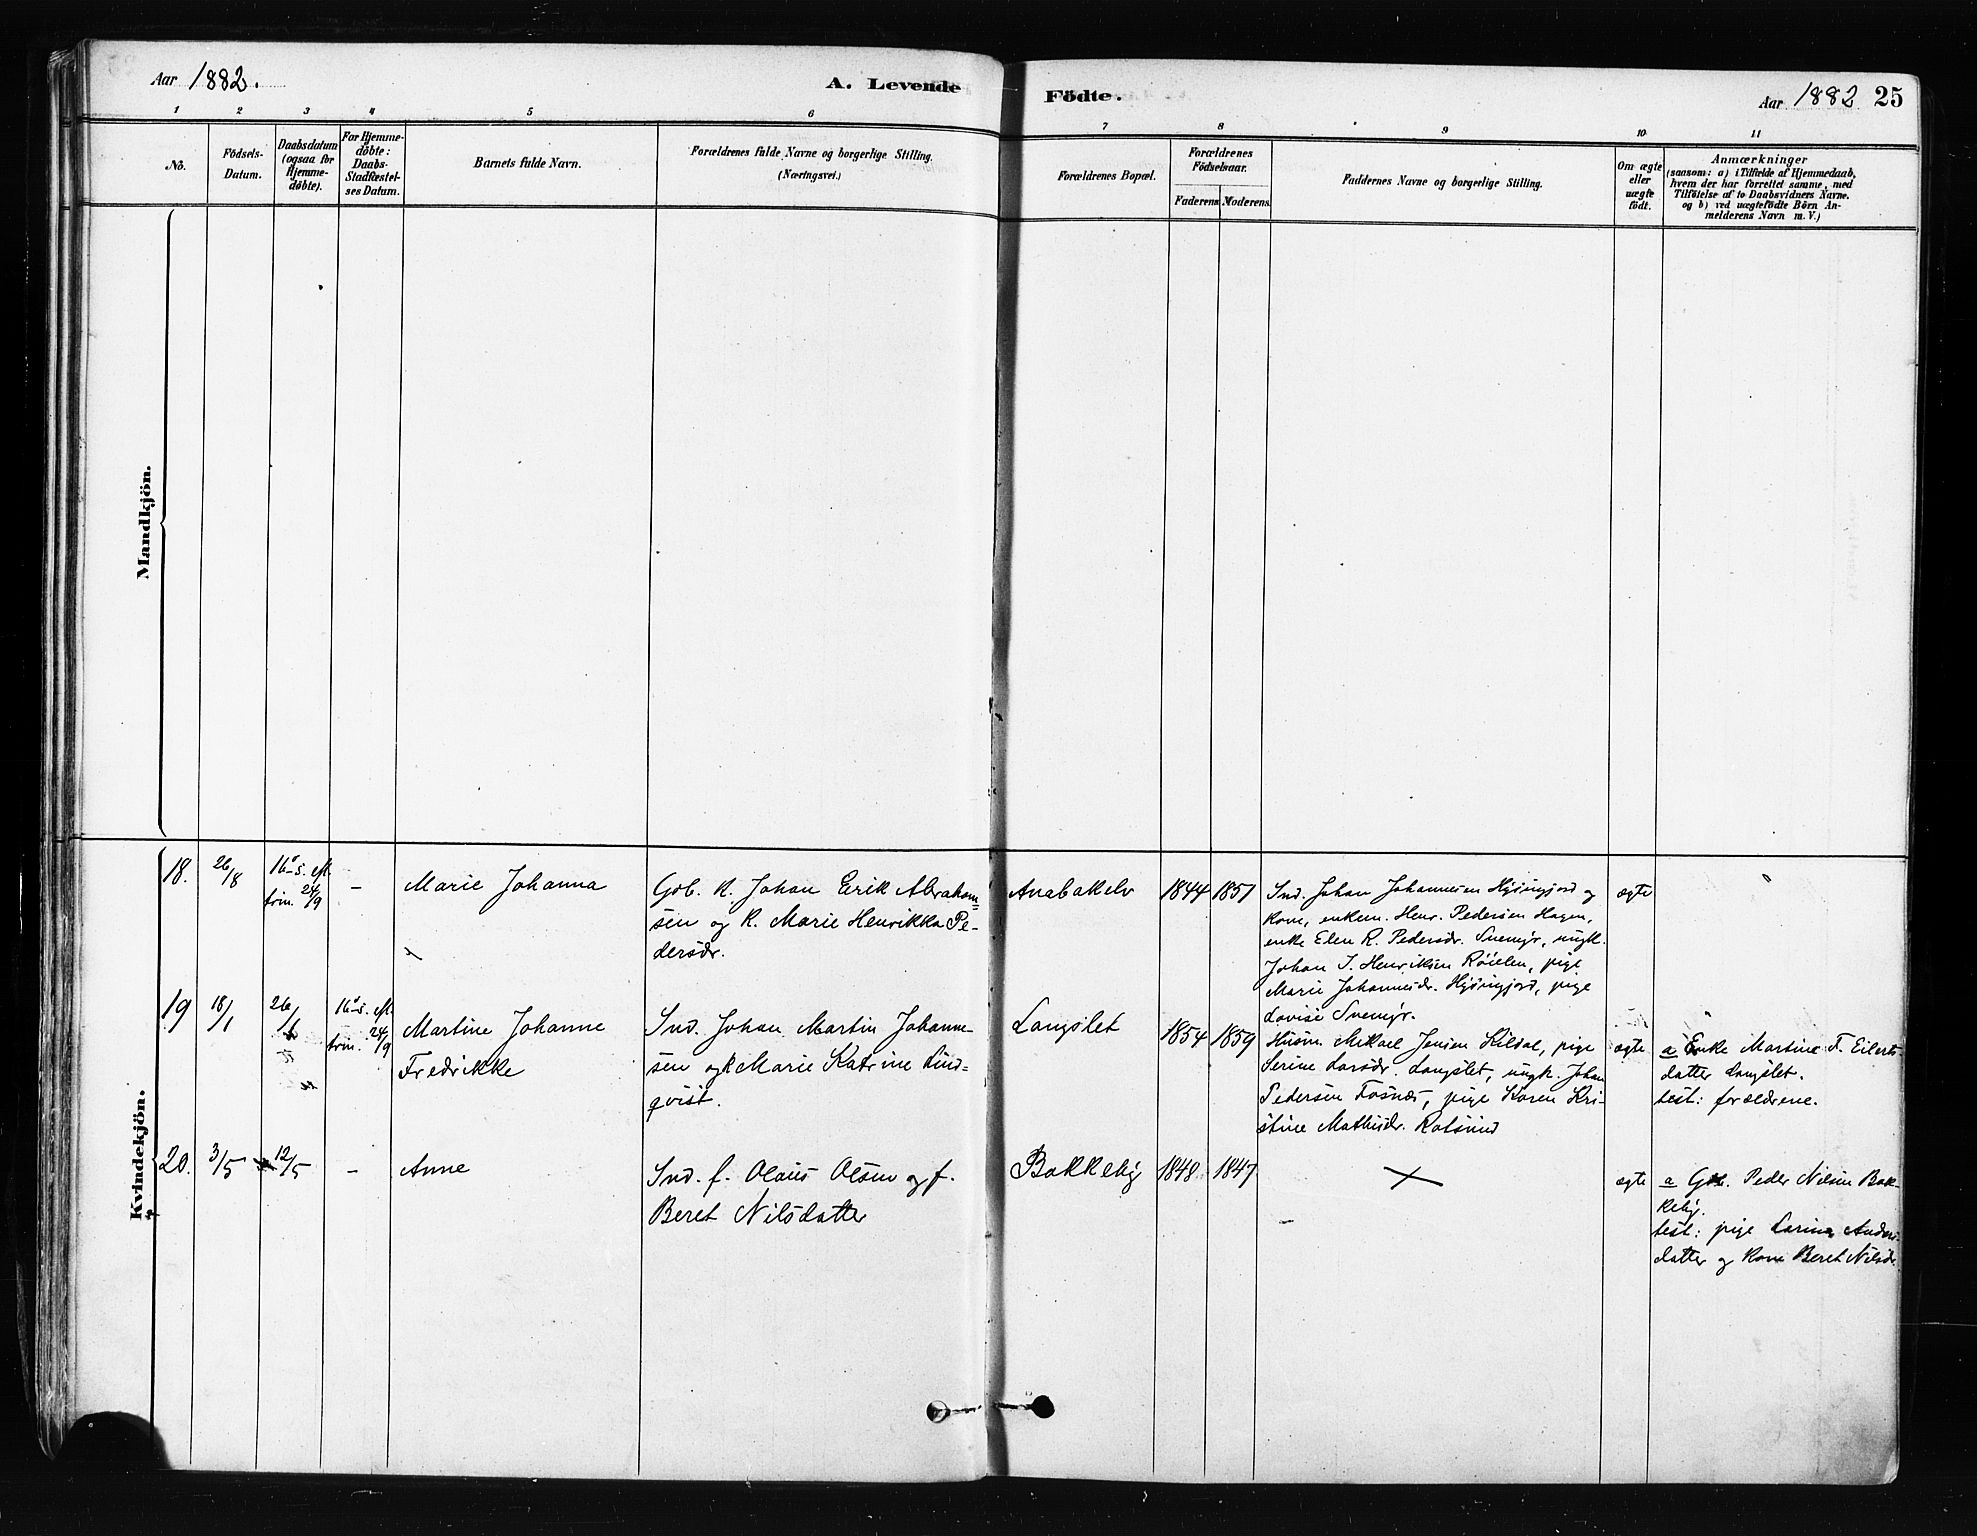 Aar 1882.
A. Levende
Födte.
Aar 1882 25
1 2 3 4 5 6 7 8 9 10 11
No.
Födsels-
Datum.
Daabsdatum
(ogsaa for
Hjemme-
döbte).
For Hjemme-
döbte:
Daabs-
Stadfæstel-
ses Datum.
Barnets fulde Navn.
Forældrenes fulde Navne og borgerlige Stilling.
(Næringsvei.)
Forældrenes Bopæl.
Forældrenes
Födselsaar.
Faderens Moderens
Faddernes Navne og borgerlige Stilling.
Om ægte
eller
uægte
födt.
Anmærkninger
(saasom: a) i Tilfælde af Hjemmedaab,
hvem der har forrettet samme, med
Tilföielse af to Daabsvidners Navne.
og b) ved uægtefödte Börn An-
melderens Navn m. V.)
Mandkjön.
Kvindekjön.
18. 26/8
16. s. eft.
trin. 24/9
-
Marie Johanna
Gbb. K. Johan Erik Abraham-
sen og K. Marie Henrikka Pe-
dersdr.
Anabakelv
1844 1851
Ind. Johan Johannesen Hjisingjord og
kone, enkem. Henr. Pedersen Hagen,
enke Elen R. Pedersdr. Svenejr, ungk.
Johan I. Henriksen Röielen, pige
Marie Johannesdr. Hjisingjord, pige
Lovise Svenejr.
ægte
19 18/1
26/1
16. s. eft.
trin. 24/9
Martine Johanne
Fredrikke
Ind. Johan Martin Johanne-
sen og K Marie Katrine Lind-
qvist.
Langslet
1854 1859
Husm. Mikael Jensen Kildal, pige
Serine Larsdr. Langslet, ungk. Johan
Pedersen Fosnæs, pige Karen Kri-
stine Mathisdr. Rotsund
ægte
a Enke Martine F. Eilerts-
datter Langslet.
test: forældrene.
20. 3/5 12/5
-
Anne
Ind. f. Olaus Olsen og f.
Beret Nilsdatter
Bakkeby
1848 1847
ægte
a Gbb. Peder Nilsen Bak-
keby.
test: pige Larina Anders-
datter og kone Beret Nilsdr.